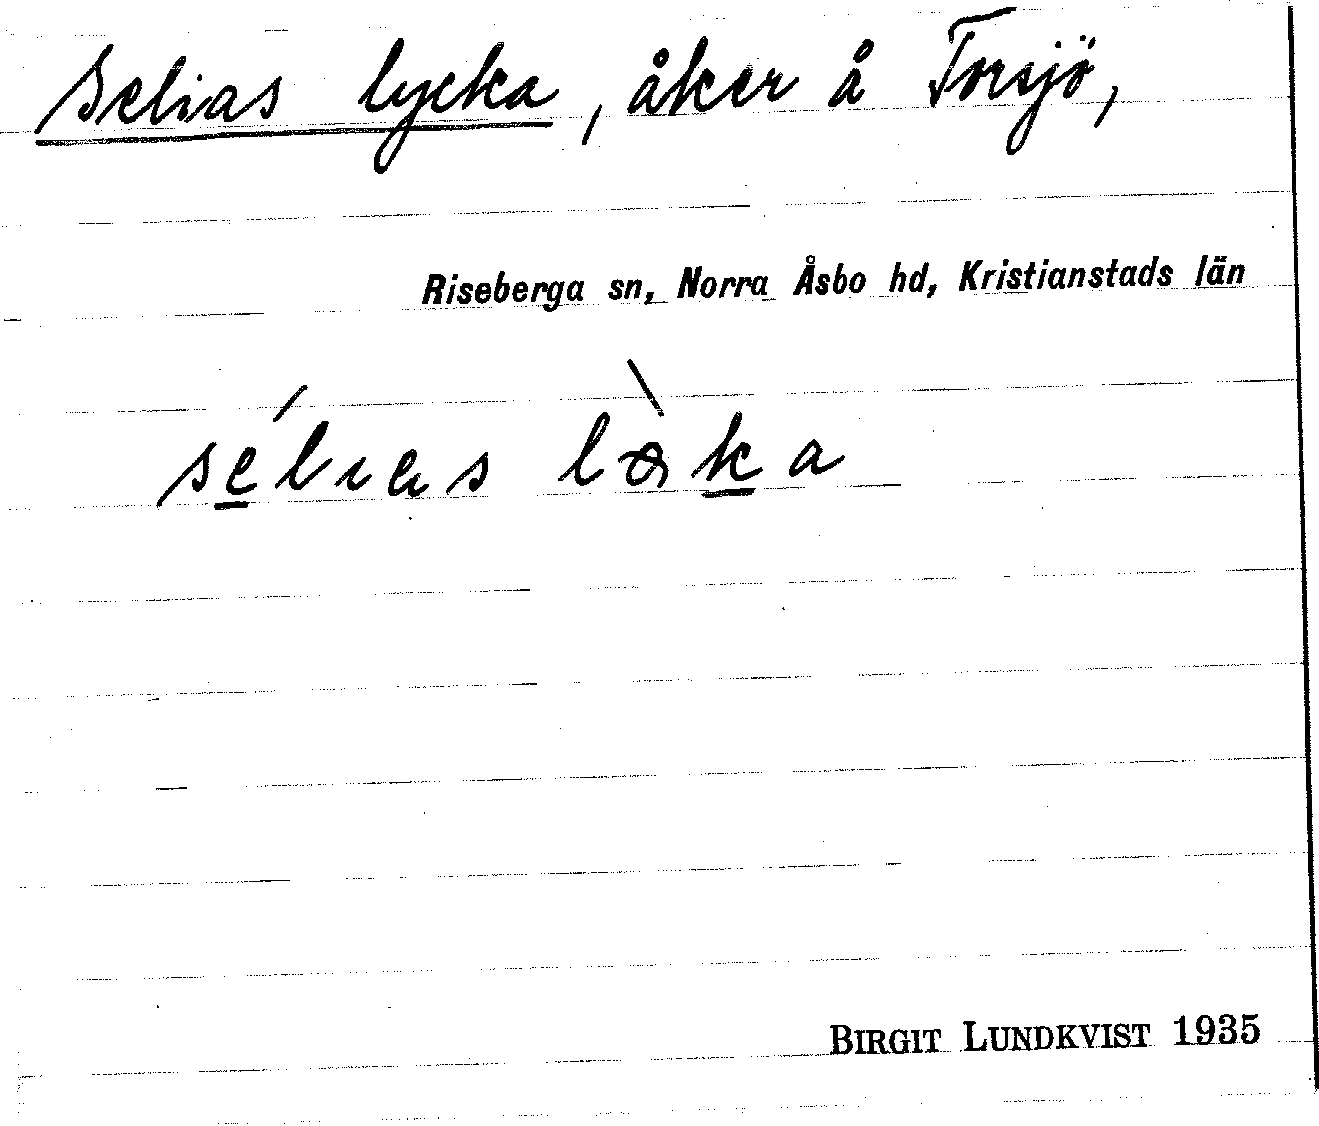 Selias lycka, åker å Torsjö,
Riseberga sn, Norra Åsbo hd, Kristianstads län
BIRGIT LUNDKVIST 1935